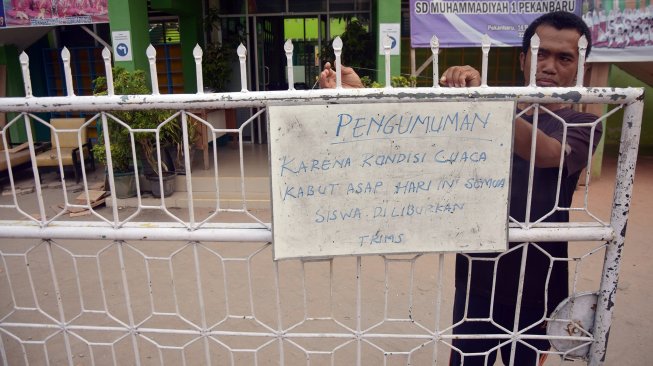 SD MUHAMMADIYAH 1 PEKANBARU
Pekanbaru,
PENGUMUMAN
KARENA KONDISI CUACA
KABUT ASAP HARI INI SEMUA
SISWA DILIBURKAN
TRIMS